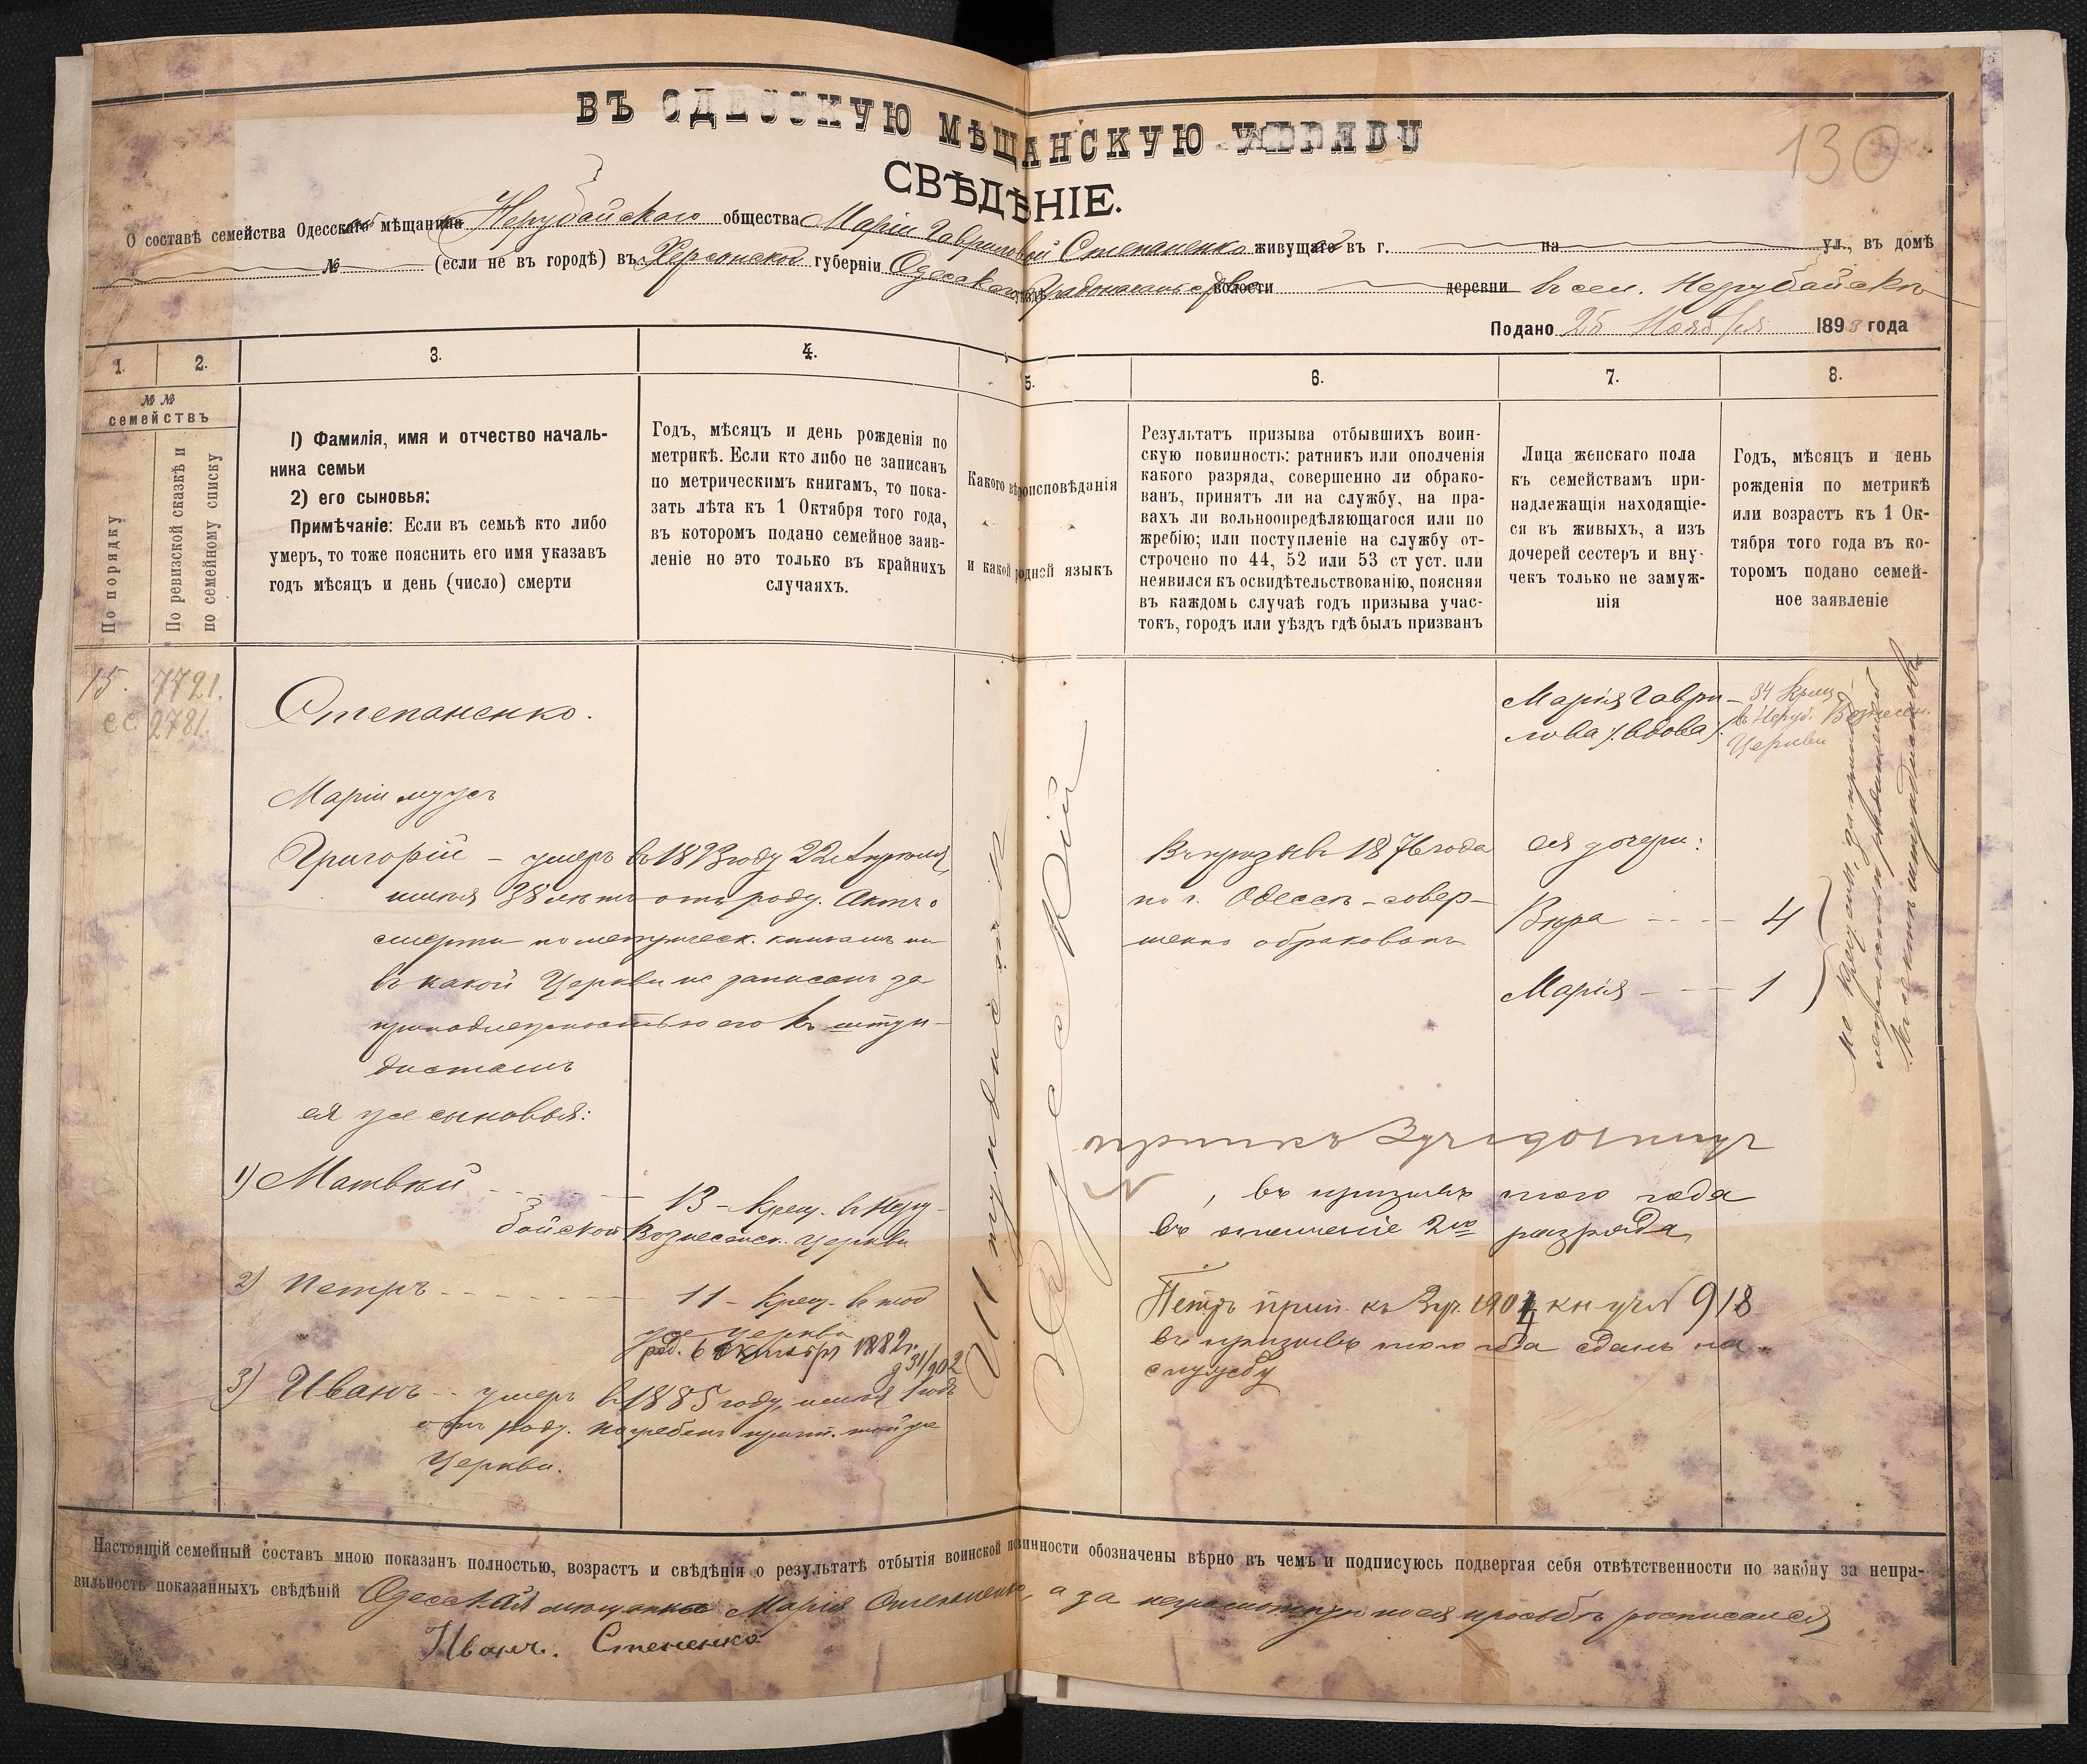 ВЪ ОДЕССКУЮ МѢЩАНСКУЮ УПРАВУ
130
СВѢДѢНІЕ.
О составѣ семейства Одесской мѣщанки Нерубайскаго общества Маріи Гавриловой Степаненко живущей въ г. на ул., въ домѣ
№ (если не въ городѣ) въ Херсонской губерніи Одесскаго Градоначальства волости деревни въ сел. Нерубайскѣ
Подано 25 Ноября 1893 года
1. 2. 3. 4. 5. 6. 7. 8.
№№ семействъ
По порядку
По ревизской сказкѣ и по семейному списку
1) Фамилія, имя и отчество началь-
ника семьи
2) его сыновья:
Примѣчаніе: Если въ семьѣ кто либо
умеръ, то тоже пояснить его имя указавъ
годъ мѣсяцъ и день (число) смерти
Годъ, мѣсяцъ и день рожденія по
метрикѣ. Если кто либо не записанъ
по метрическимъ книгамъ, то пока-
зать лѣта къ 1 Октября того года,
въ которомъ подано семейное заяв-
леніе но это только въ крайнихъ
случаяхъ.
Какого вѣроисповѣданія
и какой родной языкъ
Результатъ призыва отбывшихъ воин-
скую повинность: ратникъ или ополченія
какого разряда, совершенно ли обрако-
ванъ, принятъ ли на службу, на пра-
вахъ ли вольноопредѣляющагося или по
жребію; или поступленіе на службу от-
строчено по 44, 52 или 53 ст уст. или
неявился къ освидѣтельствованію, поясняя
въ каждомъ случаѣ годъ призыва учас-
токъ, городъ или уѣздъ гдѣ былъ призванъ
Лица женскаго пола
къ семействамъ при-
надлежащія находящіе-
ся въ живыхъ, а изъ
дочерей сестеръ и вну-
чекъ только не замуж-
нія
Годъ, мѣсяцъ и день
рожденія по метрикѣ
или возрастъ къ 1 Ок-
тября того года въ ко-
торомъ подано семей-
ное заявленіе
15. 7721.
с с. 2781.
Степаненко.
Маріи мужъ
Григорій – умеръ въ 1893 году 22 Апрѣля,
имѣя 38 лѣтъ отъ роду. Актъ о
смерти по метрическ. книгамъ ни
въ какой Церкви не записанъ за
принадлежностью его къ штун-
дистамъ
ея же сыновья:
1) Матвѣй - - - 13 – Крещ. въ Неру-
байской Вознесенск. церкви
2) Петръ - - - 11 – Крещ. въ той
же церкви
род. 6 Октября 1882 г.
3) Иванъ - - умеръ въ 1885 году, имѣя 1 годъ
отъ роду. Погребенъ причт. той же
Церкви.
Штундистъ
Русскій
Въ призывъ 1876 года
по г. Одессѣ – совер-
шенно обракованъ
, въ призывъ того года
въ ополченіе 2го разряда
Петръ прип. къ Зуч. 1904 кн уч № 918
въ призывъ того года сданъ на
службу
Марія Гаври-
лова /: вдова :/
34 Крещ.
въ Неруб. Вознесен.
Церкви
ея дочери:
Вѣра - - - 4
Марія - - - 1
не крещены, за
принадлежностью родителей
къ сектѣ штундистовъ
Настоящій семейный составъ мною показанъ полностью, возрастъ и свѣдѣнія о результатѣ отбытія воинской повинности обозначены вѣрно въ чемъ и подписуюсь подвергая себя отвѣтственности по закону за непра-
вильность показанныхъ свѣдѣній Одесская мѣщанка Марія Степаненко, а за неграмотную по ея просьбѣ росписался
Иванъ. Степененко